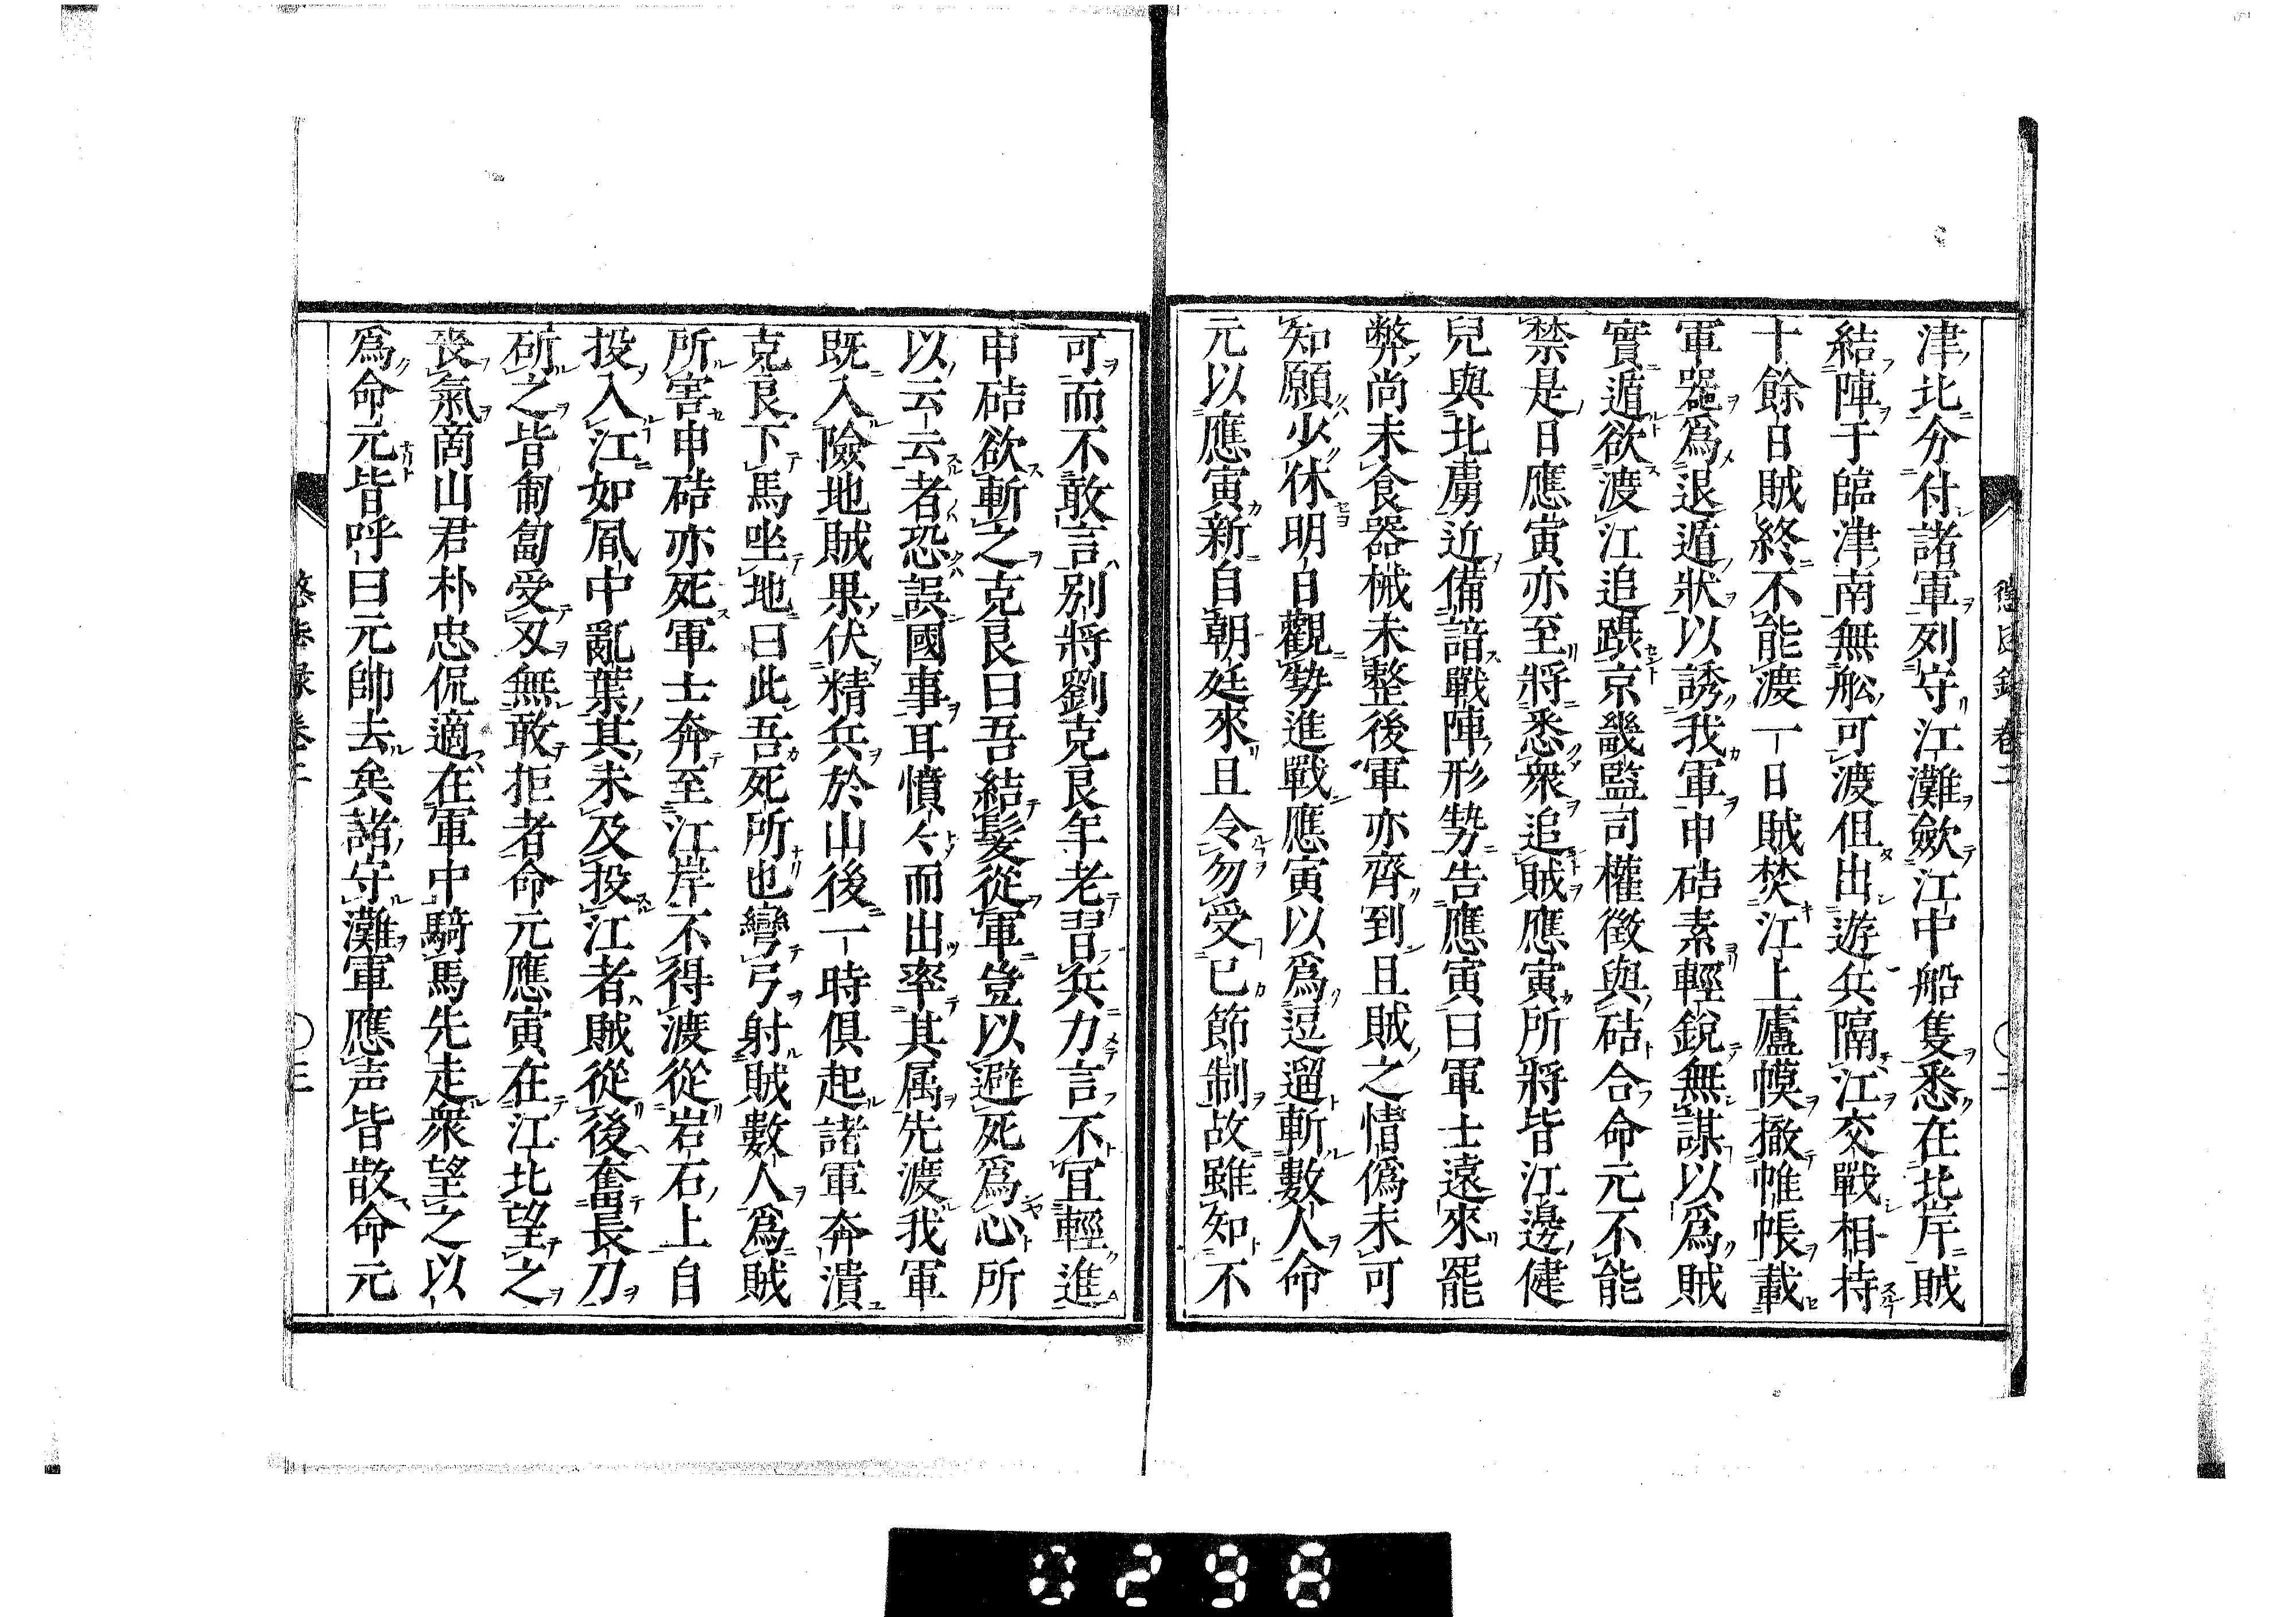 津北分付諸軍列守江灘歛江中船隻悉在北岸賊
結陣于臨津南無舩可渡但出遊兵隔江交戰相持
十餘日賊終不能渡一日賊焚江上廬幙撤帷帳載
軍器爲退遁狀以誘我軍申硈素輕銳無謀以爲賊
實遁欲渡江追躡京畿監司權徵與硈合命元不能
禁是日應寅亦至將悉衆追賊應寅所將皆江邊健
兒與北虜近備諳戰陣形勢告應寅曰軍士遠來罷
弊尚未食器械未整後軍亦齊到且賊之情僞未可
知願少休明日觀勢進戰應寅以爲逗遛斬數人命
元以應寅新自朝廷來且令勿受已節制故雖知不
可而不敢言別將劉克良年老習兵力言不宜輕進
申硈欲斬之克良曰吾結髮從軍豈以避死爲心所
以云云者恐誤國事耳憤々而出率其属先渡我軍
既入險地賊果伏精兵於山後一時俱起諸軍奔潰
克良下馬坐地曰此吾死所也彎弓射賊數人爲賊
所害申硈亦死軍士奔至江岸不得渡從岩石上自
投入江如風中亂葉其未及投江者賊從後奮長刀
斫之皆匍匐受刄無敢拒者命元應寅在江北望之
喪氣商山君朴忠侃適在軍中騎馬先走衆望之以
爲命元皆呼曰元帥去矣諸守灘軍應声皆散命元
懲毖録卷二
〇二
懲毖録卷二
〇三
0298